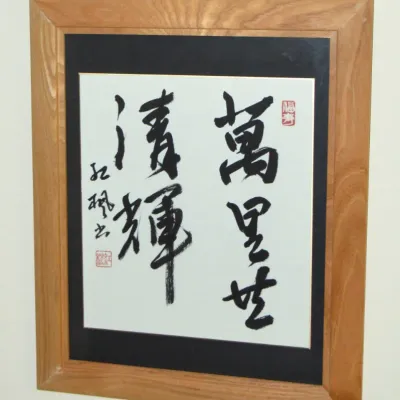 萬里共
清輝
紅楓书